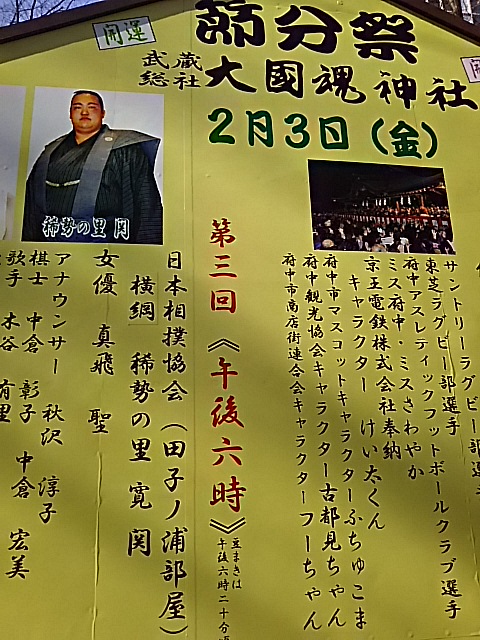 開運
節分祭
武蔵
総社
大國魂神社
2月3日(金)
サントリーラグビー部選手
東芝ラグビー部選手
府中アスレティックフットボールクラブ選手
ミス府中・ミスさわやか
京王電鉄株式会社奉納
キャラクター けい太くん
府中市マスコットキャラクターふちゅこま
府中観光協会キャラクター古都見ちゃん
府中市商店街連合会キャラクターフーちゃん
第三回《午後六時》
豆まきは
午後六時二十分頃
稀勢の里 関
日本相撲協会(田子ノ浦部屋)
横綱 稀勢の里 寛 関
女優 真飛 聖
アナウンサー 秋沢 淳子
棋士 中倉 彰子 中倉 宏美
歌手 水谷 有里